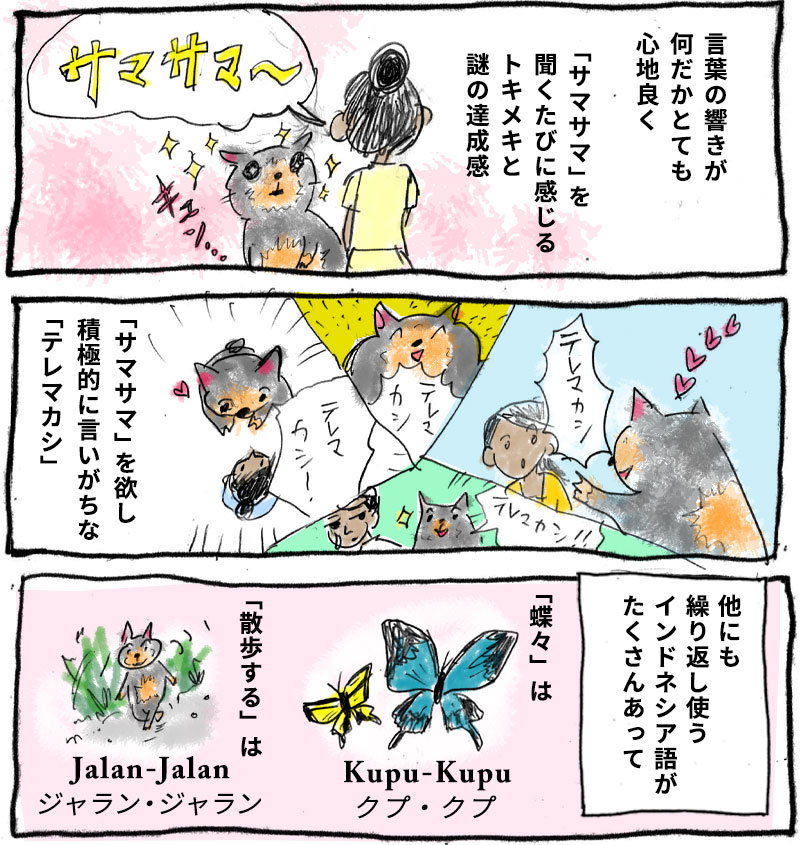 言葉の響きが
何だかとても
心地良く
「サマサマ」を
聞くたびに感じる
トキメキと
謎の達成感
サマサマ〜
キュン…
テレマカシ
テレマカシ!!
テレマ
カシ
テレマ
カシー!
「サマサマ」を欲し
積極的に言いがちな
「テレマカシ」
他にも
繰り返し使う
インドネシア語が
たくさんあって
「蝶々」は
Kupu-Kupu
クプ・クプ
「散歩する」は
Jalan-Jalan
ジャラン・ジャラン